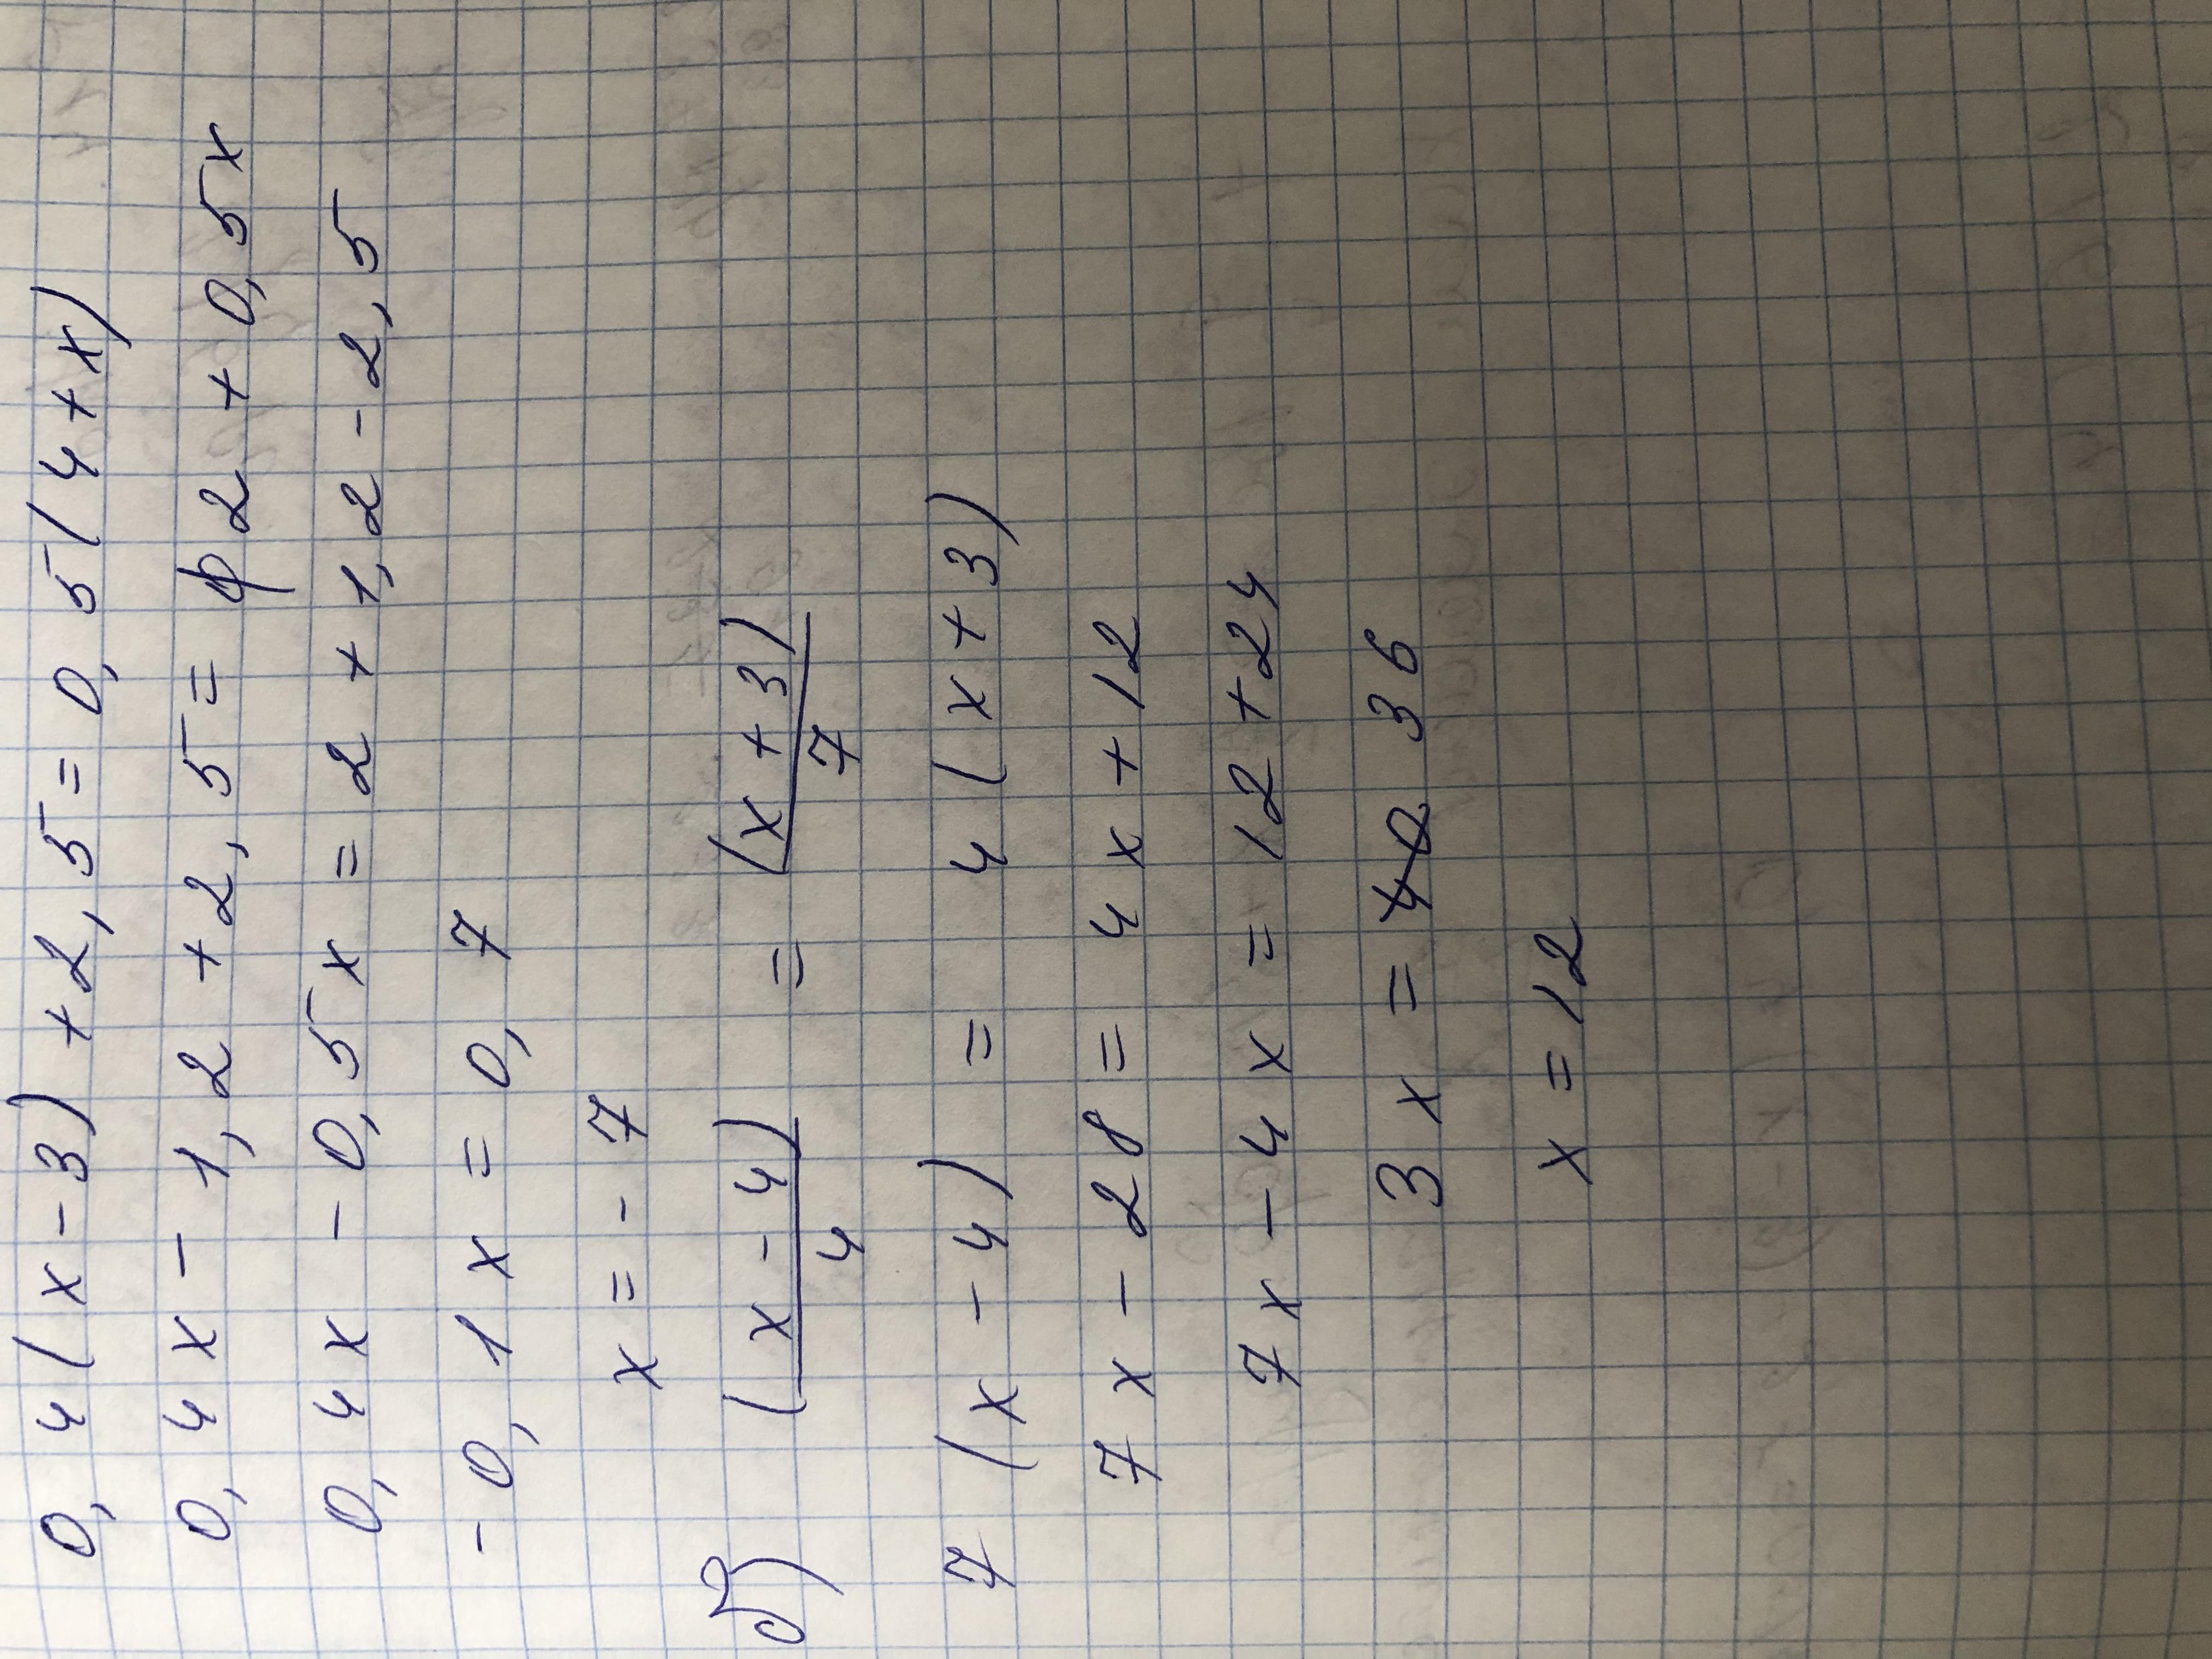 0,4(x-3)+2,5=0,5(4+x)
0,4x-1,2+2,5=2+0,5x
0,4x-0,5x=2+1,2-2,5
-0,1x=0,7
x=-7
б) (x-4)/4 = (x+3)/7
7(x-4) = 4(x+3)
7x-28=4x+12
7x-4x=12+24
3x=40 36
x=12